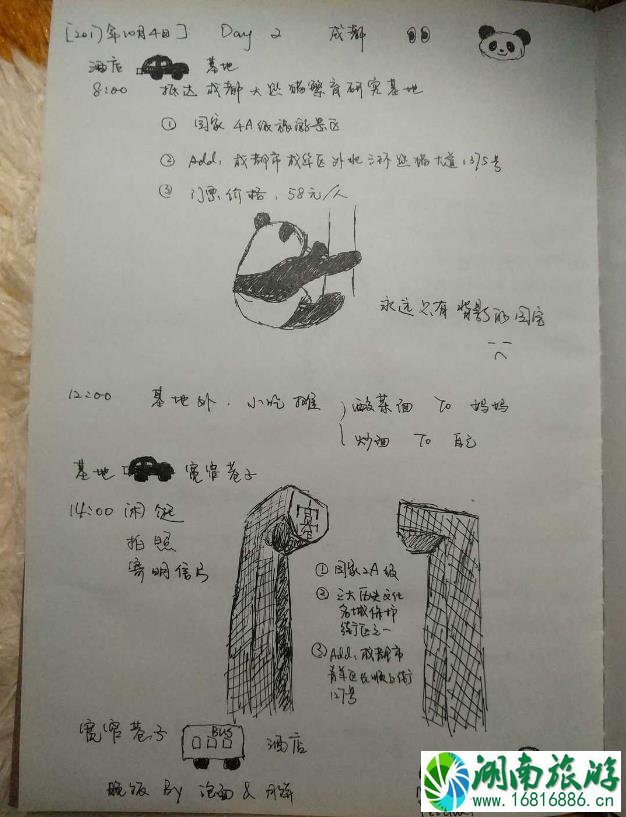 [2017年10月4日] Day 2 成都
酒店 基地
8:00 抵达成都大熊猫繁育研究基地
① 国家4A级旅游景区
② Add: 成都市成华区外北三环熊猫大道1375号
③ 门票价格: 58元/人
永远只有背影的国宝
12:00 基地外, 小吃摊 酸菜面 To 妈妈
炒面 To 自己
基地 宽窄巷子
14:00 闲逛
拍照
寄明信片
① 国家2A级
② 三大历史文化
名城保护
街区之一
③ Add: 成都市
青羊区长顺上街
127号
宽窄巷子 BUS 酒店
晚饭 By 泡面 & 月饼
湖南旅游
www.16816886.cn